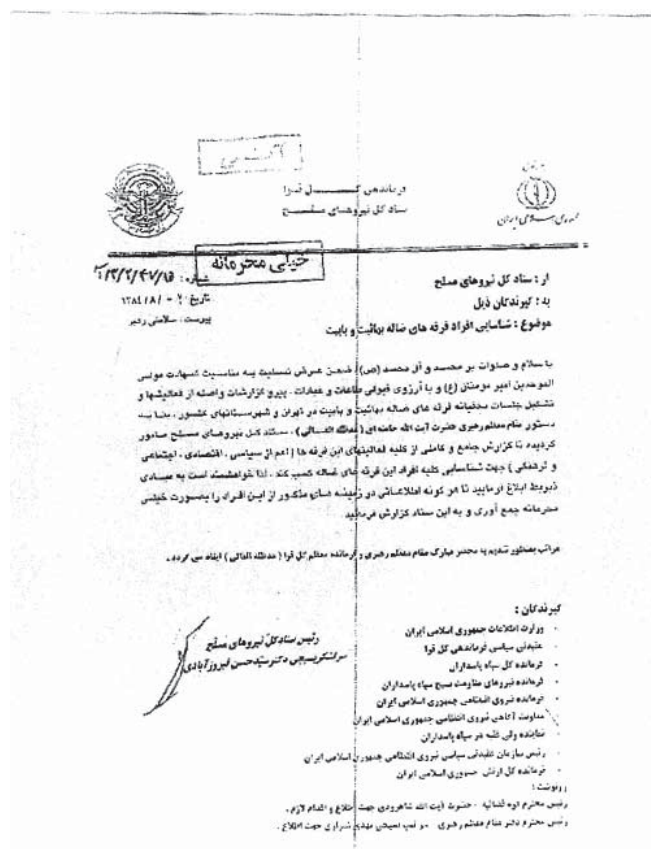 فرماندهی کــــل قوا
ستاد کل نیروهای مسلح
جمهوری اسلامی ایران
خیلی محرمانه
شماره :
تاریخ : ۱۳۸٤/۸/
پیوست :
از : ستاد کل نیروهای مسلح
به : گیرندگان ذیل
موضوع : شناسایی افراد فرقه های ضاله بهائیت و بابیت
با سلام و صلوات بر محمد و آل محمد (ص) ضمن عرض تسلیت به مناسبت شهادت مولی
الموحدین امیر مومنان (ع) و با آرزوی قبولی طاعات و عبادات . پیرو گزارشات واصله از فعالیتها و
تشکیل جلسات مخفیانه فرقه های ضاله بهائیت و بابیت در تهران و شهرستانهای کشور ، بنا به
دستور مقام معظم رهبری حضرت آیت الله خامنه ای (مدظله العالی) ، ستاد کل نیروهای مسلح مامور
گردیده تا گزارش جامع و کاملی از کلیه فعالیتهای این فرقه ها ( اعم از سیاسی ، اقتصادی ، اجتماعی
و فرهنگی ) جهت شناسایی کلیه افراد این فرقه های ضاله کسب کند . لذا خواهشمند است به مبادی
ذیربط ابلاغ فرمایید تا هر گونه اطلاعاتی در زمینه های مذکور از این افراد را بصورت خیلی
محرمانه جمع آوری و به این ستاد گزارش فرمایید.
مراتب بمنظور تقدیم به محضر مبارک مقام معظم رهبری و فرمانده معظم کل قوا ( مدظله العالی ) ایفاد می گردد .
رئیس ستاد کل نیروهای مسلح
سرلشکر بسیجی دکتر سید حسن فیروزآبادی
گیرندگان :
- وزارت اطلاعات جمهوری اسلامی ایران
- عقیدتی سیاسی فرماندهی کل قوا
- فرمانده کل سپاه پاسداران
- فرمانده نیروهای مقاومت بسیج سپاه پاسداران
- فرمانده نیروی انتظامی جمهوری اسلامی ایران
- معاونت آگاهی نیروی انتظامی جمهوری اسلامی ایران
- نماینده ولی فقیه در سپاه پاسداران
- رئیس سازمان عقیدتی سیاسی نیروی انتظامی جمهوری اسلامی ایران
- فرمانده کل ارتش جمهوری اسلامی ایران
رونوشت :
رئیس محترم قوه قضائیه - حضرت آیت الله شاهرودی جهت اطلاع و اقدام لازم .
رئیس محترم دفتر مقام معظم رهبری - جهت اطلاع .